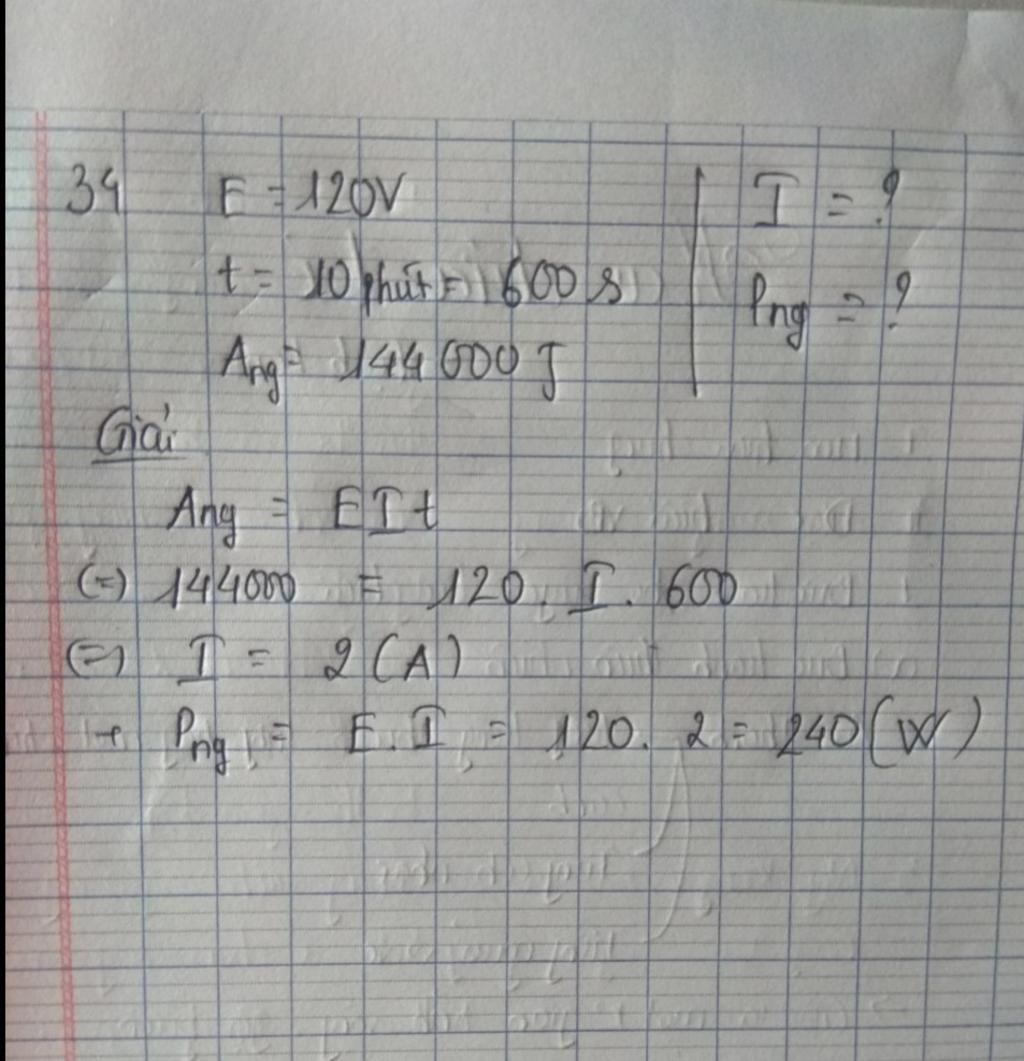 34 E = 120V I = ?
t = 10 phút = 600 s Png = ?
Ang = 144 000 J
Giải
Ang = E I t
(=) 144000 = 120 . I . 600
(=) I = 2 (A)
+ Png = E . I = 120 . 2 = 240 (W)